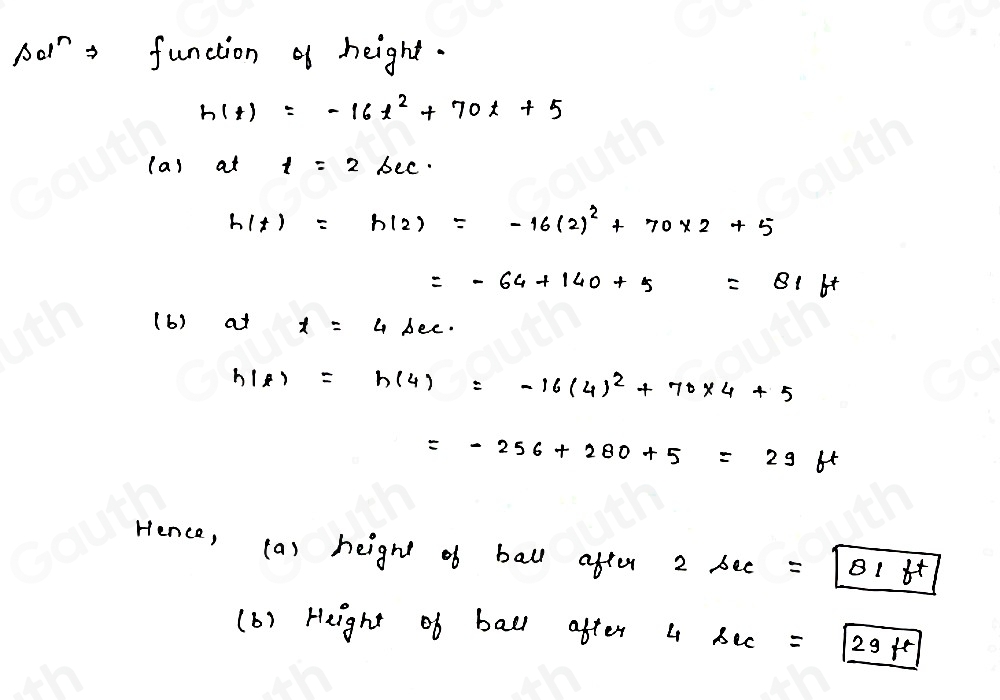 Solⁿ ⇒ function of height.
h(t) = -16t² + 70t + 5
(a) at t = 2 sec.
h(t) = h(2) = -16(2)² + 70×2 + 5
= -64 + 140 + 5 = 81 ft
(b) at t = 4 sec.
h(t) = h(4) = -16(4)² + 70×4 + 5
= -256 + 280 + 5 = 29 ft
Hence, (a) height of ball after 2 sec = 81 ft
(b) Height of ball after 4 sec = 29 ft